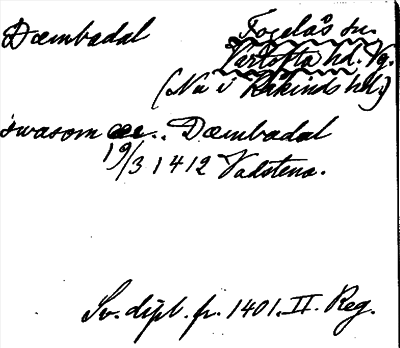 Dæmbadal Fogelås sn.
Vartofta hd. Vg.
(Nu i Kåkinds hd.)
swasom æe.. Dæmbadal
19/3 1412 Vadstena.
Sv. dipl. fr. 1401. II. Reg.